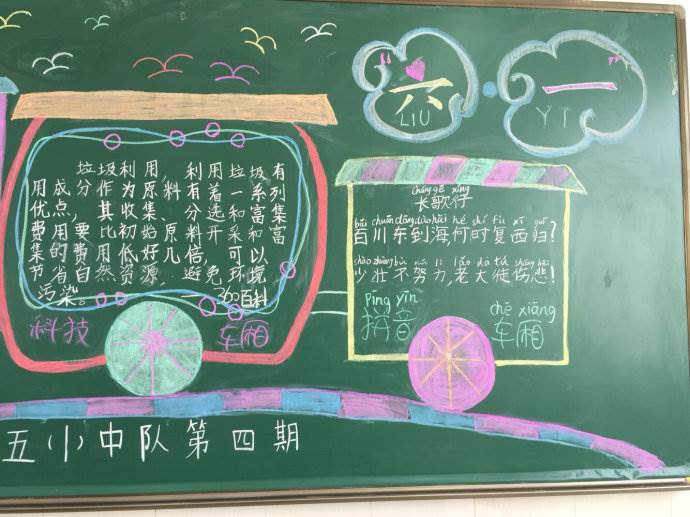 “六·一”
LIU YI
垃圾利用，利用垃圾有
用成分作为原料有着一系列
优点，其收集、分选和富集
费用要比初始原料开采和富
集的费用低好几倍，可以
节省自然资源，避免环境
污染。
——360百科
科技 车厢
cháng gē xíng
长歌行
bǎi chuān dōng dào hǎi hé shí fù xī guī
百川东到海，何时复西归？
少壮不努力，老大徒伤悲！
pīng yīn
拼音
chē xiāng
车厢
五(小)中队第四期